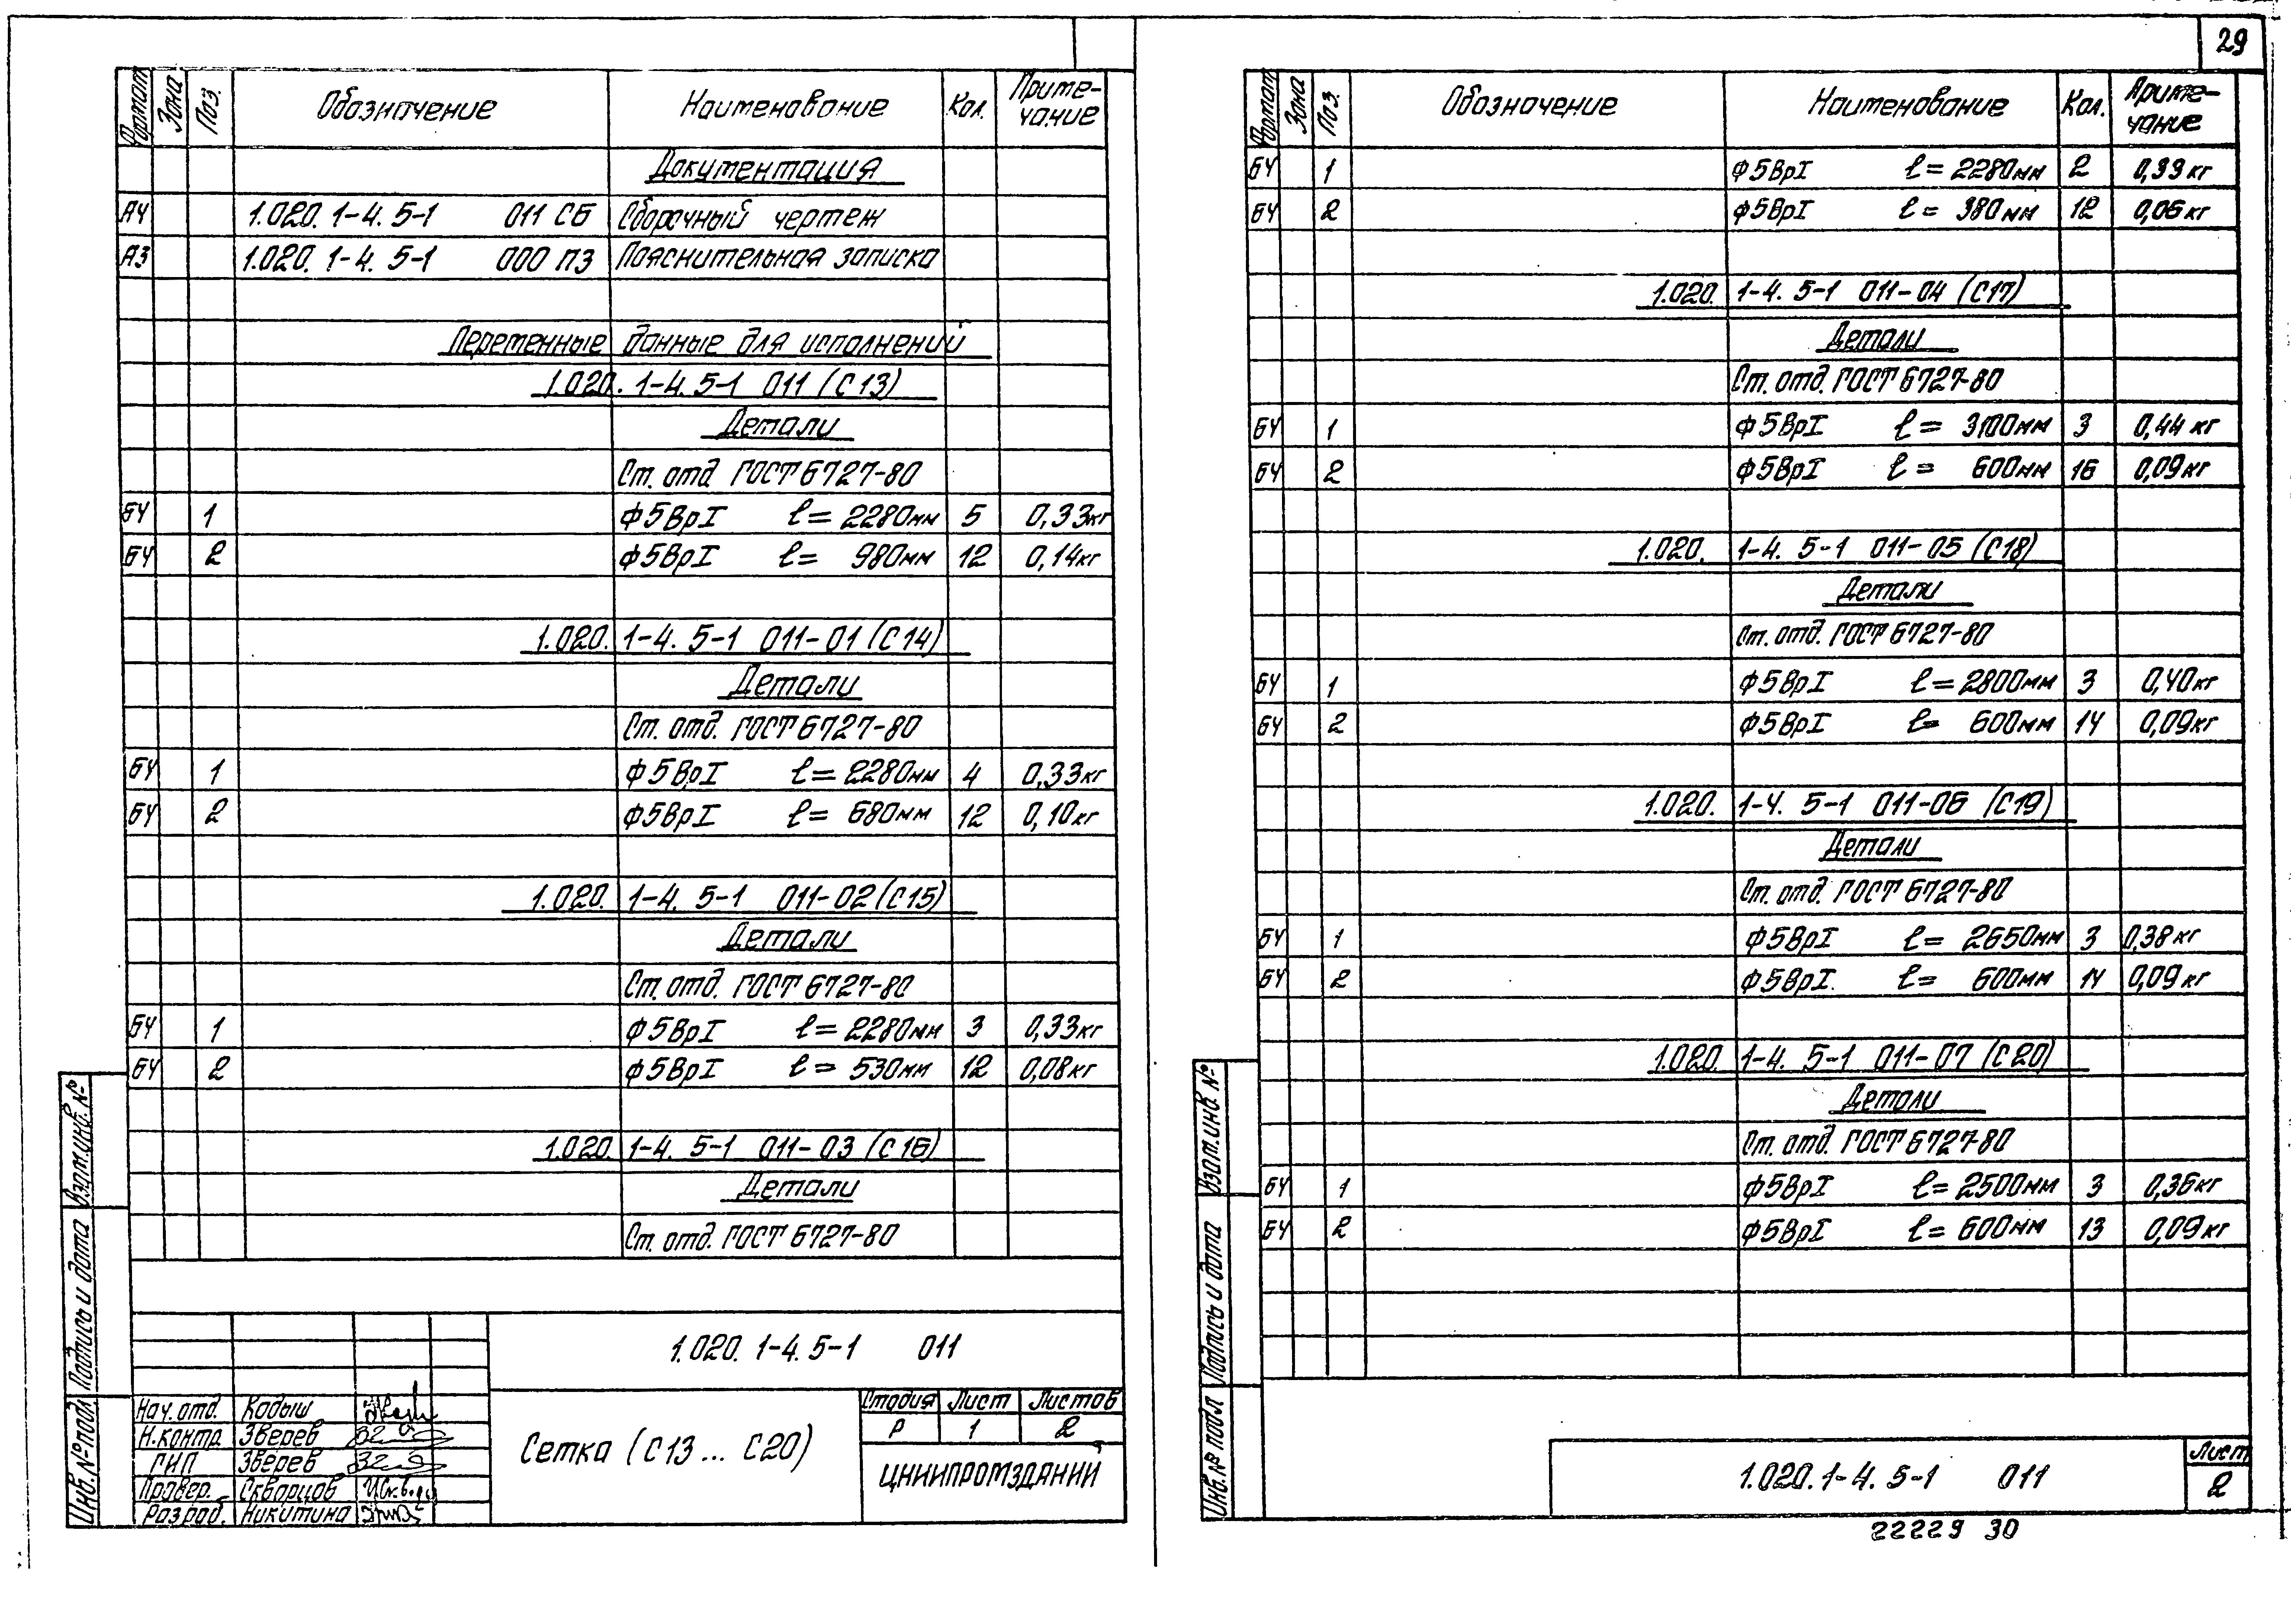 Формат Зона Поз. Обозначение Наименование Кол. Приме-
чание
Документация
А4 1.020. 1-4. 5-1 011 СБ Сборочный чертеж
А3 1.020. 1-4. 5-1 000 ПЗ Пояснительная записка
Переменные данные для исполнений
1.020. 1-4. 5-1 011 (С13)
Детали
Ст. отд ГОСТ 6727-80
БЧ 1 Ф5ВрI ℓ= 2280мм 5 0,33кг
БЧ 2 Ф5ВрI ℓ= 980мм 12 0,14кг
1.020. 1-4. 5-1 011-01 (С14)
Детали
Ст. отд. ГОСТ 6727-80
БЧ 1 Ф5ВрI ℓ= 2280мм 4 0,33кг
БЧ 2 Ф5ВрI ℓ= 680мм 12 0,10кг
1.020. 1-4. 5-1 011-02 (С15)
Детали
Ст. отд. ГОСТ 6727-80
БЧ 1 Ф5ВрI ℓ= 2280мм 3 0,33кг
БЧ 2 Ф5ВрI ℓ= 530мм 12 0,08кг
1.020. 1-4. 5-1 011-03 (С16)
Детали
Ст. отд. ГОСТ 6727-80
Взам.инв. №
Подпись и дата
Инв. № подл
1.020. 1-4. 5-1 011
Нач. отд. Кодыш
Н.контр Зверев
ГИП Зверев
Провер. Скворцов
Разраб. Никитина
Сетка (С13 ... С20)
Стадия Лист Листов
Р 1 2
ЦНИИПРОМЗДАНИЙ
29
Формат Зона Поз. Обозначение Наименование Кол. Приме-
чание
БЧ 1 Ф5ВрI ℓ= 2280мм 2 0,33кг
БЧ 2 Ф5ВрI ℓ= 380мм 12 0,06кг
1.020. 1-4. 5-1 011-04 (С17)
Детали
Ст. отд. ГОСТ 6727-80
БЧ 1 Ф5ВрI ℓ= 3100мм 3 0,44кг
БЧ 2 Ф5ВрI ℓ= 600мм 16 0,09кг
1.020. 1-4. 5-1 011-05 (С18)
Детали
Ст. отд. ГОСТ 6727-80
БЧ 1 Ф5ВрI ℓ= 2800мм 3 0,40кг
БЧ 2 Ф5ВрI ℓ= 600мм 14 0,09кг
1.020. 1-4. 5-1 011-06 (С19)
Детали
Ст. отд. ГОСТ 6727-80
БЧ 1 Ф5ВрI ℓ= 2650мм 3 0,38кг
БЧ 2 Ф5ВрI. ℓ= 600мм 14 0,09кг
1.020. 1-4. 5-1 011-07 (С20)
Детали
Ст. отд. ГОСТ 6727-80
БЧ 1 Ф5ВрI ℓ= 2500мм 3 0,36кг
БЧ 2 Ф5ВрI ℓ= 600мм 13 0,09кг
Взам.инв. №
Подпись и дата
Инв. № подл
1.020. 1-4. 5-1 011
Лист
2
22229 30